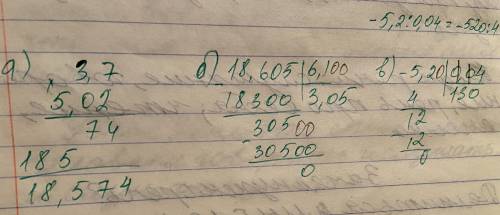 -5,2:0,04=-520:4
а) 3,7
× 5,02
74
185
18,574
б) 18,605 | 6,100
- 18300 | 3,05
- 30500
30500
0
в) -5,20 | 0,04
4 | 130
12
12
0